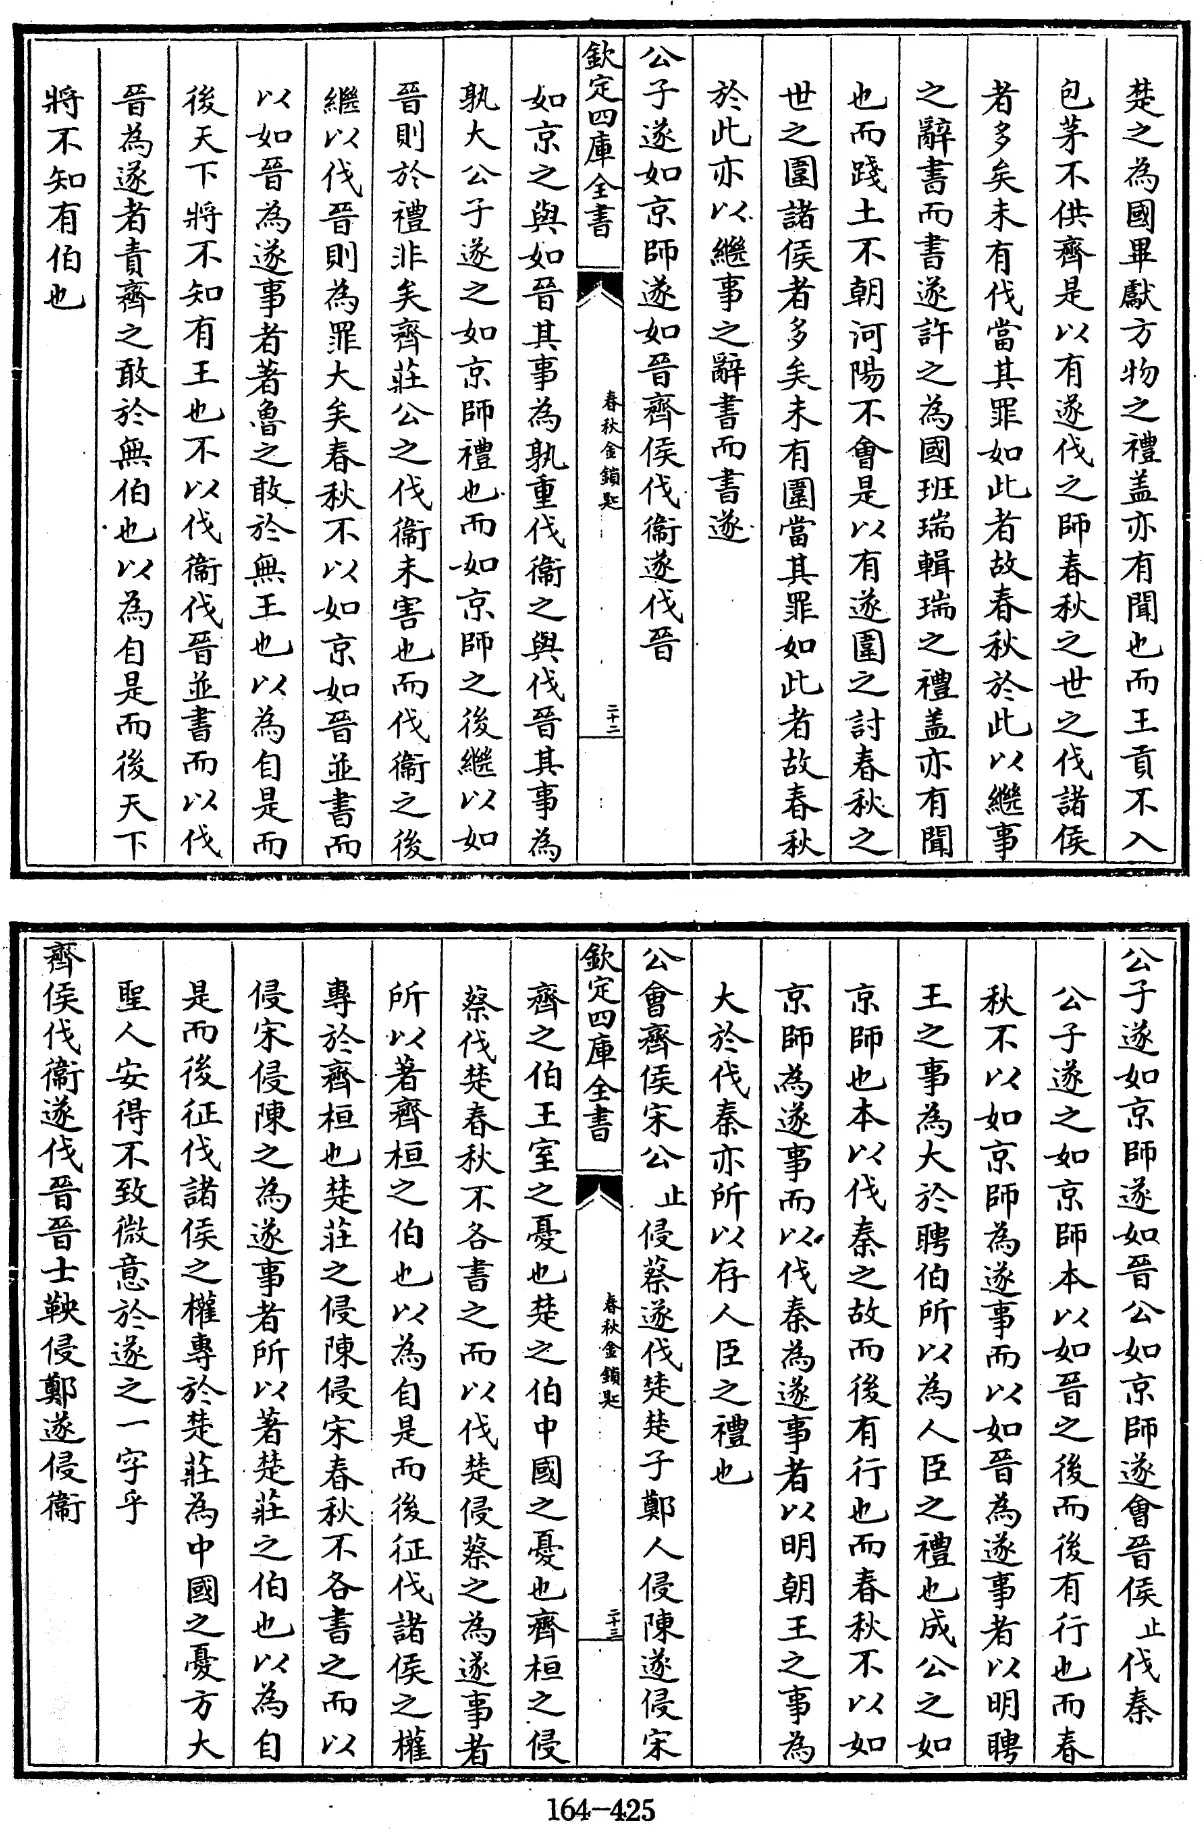 楚之為國畢獻方物之禮盖亦有聞也而王貢不入
包茅不供齊是以有遂伐之師春秋之世之伐諸侯
者多矣未有伐當其罪如此者故春秋於此以繼事
之辭書而書遂許之為國班瑞輯瑞之禮盖亦有聞
也而踐土不朝河陽不會是以有遂圍之討春秋之
世之圍諸侯者多矣未有圍當其罪如此者故春秋
於此亦以繼事之辭書而書遂
公子遂如京師遂如晉齊侯伐衞遂伐晉
欽定四庫全書
春秋金鎖匙
二十二
如京之與如晉其事為孰重伐衞之與伐晉其事為
孰大公子遂之如京師禮也而如京師之後繼以如
晉則於禮非矣齊莊公之伐衞未害也而伐衞之後
繼以伐晉則為罪大矣春秋不以如京如晉並書而
以如晉為遂事者著魯之敢於無王也以為自是而
後天下將不知有王也不以伐衞伐晉並書而以伐
晉為遂者責齊之敢於無伯也以為自是而後天下
將不知有伯也
公子遂如京師遂如晉公如京師遂會晉侯止伐秦
公子遂之如京師本以如晉之後而後有行也而春
秋不以如京師為遂事而以如晉為遂事者以明聘
王之事為大於聘伯所以為人臣之禮也成公之如
京師也本以伐秦之故而後有行也而春秋不以如
京師為遂事而以伐秦為遂事者以明朝王之事為
大於伐秦亦所以存人臣之禮也
公會齊侯宋公止侵蔡遂伐楚楚子鄭人侵陳遂侵宋
欽定四庫全書
春秋金鎖匙
二十三
齊之伯王室之憂也楚之伯中國之憂也齊桓之侵
蔡伐楚春秋不各書之而以伐楚侵蔡之為遂事者
所以著齊桓之伯也以為自是而後征伐諸侯之權
專於齊桓也楚莊之侵陳侵宋春秋不各書之而以
侵宋侵陳之為遂事者所以著楚莊之伯也以為自
是而後征伐諸侯之權專於楚莊為中國之憂方大
聖人安得不致微意於遂之一字乎
齊侯伐衞遂伐晉晉士鞅侵鄭遂侵衞
164-425